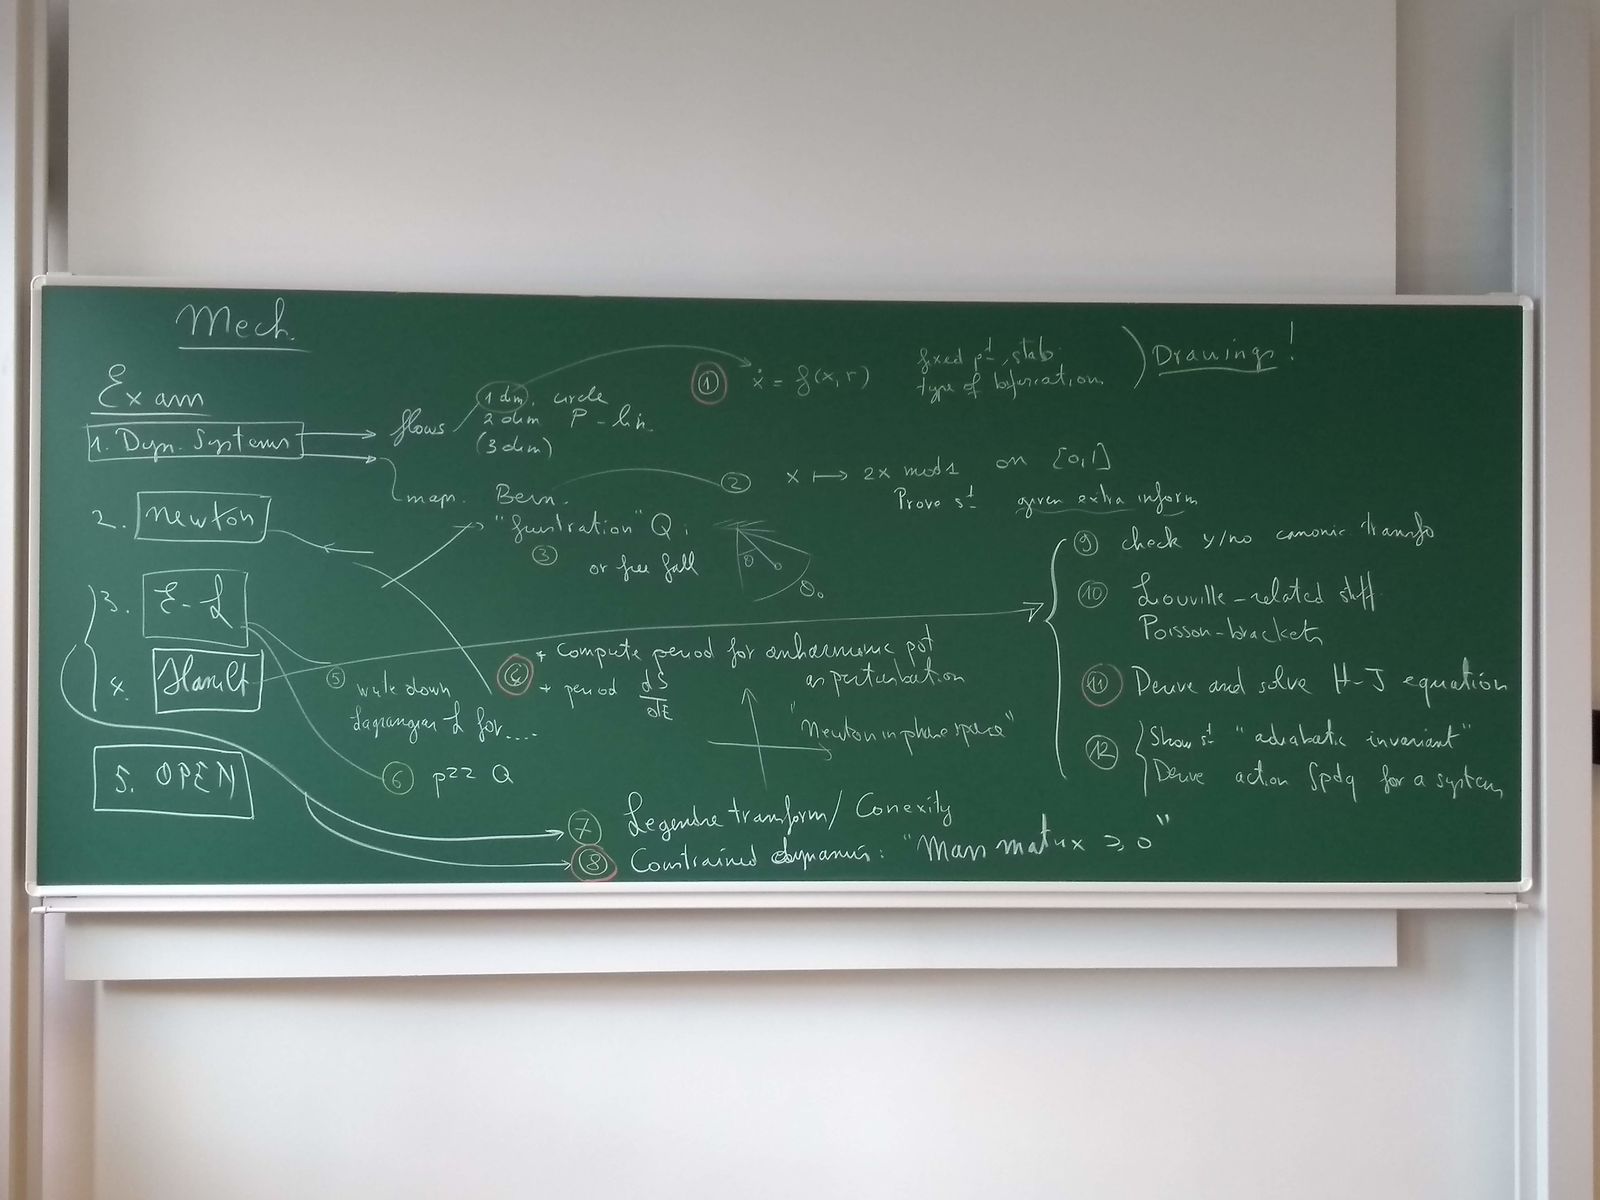 Mech
Exam
1. Dyn. Systems
flows
1 dim. circle
2 dim P-lin.
(3 dim)
① ẋ = f(x,r)
fixed pt, stab.
type of bifurcation
Drawings!
map. Bern.
② x ↦ 2x mod 1 on [0,1]
Prove st given extra inform
2. Newton
"frustration" Q:
③ or free fall
θ
θ₀
3. E-L
4. Hamilt
④ + compute period for anharmonic pot
as perturbation
+ period dS/dE
"Newton in phase space"
⑤ write down
Lagrangian L for....
⑥ p22 Q
5. OPEN
⑦ Legendre transform / Conexity
⑧ Constrained dynamics: "Mass matrix ≥ 0"
⑨ check y/no canonic transfo
⑩ Liouville-related stuff
Poisson-brackets
⑪ Derive and solve H-J equation
⑫ Show st "adiabatic invariant"
Derive action ∫pdq for a system